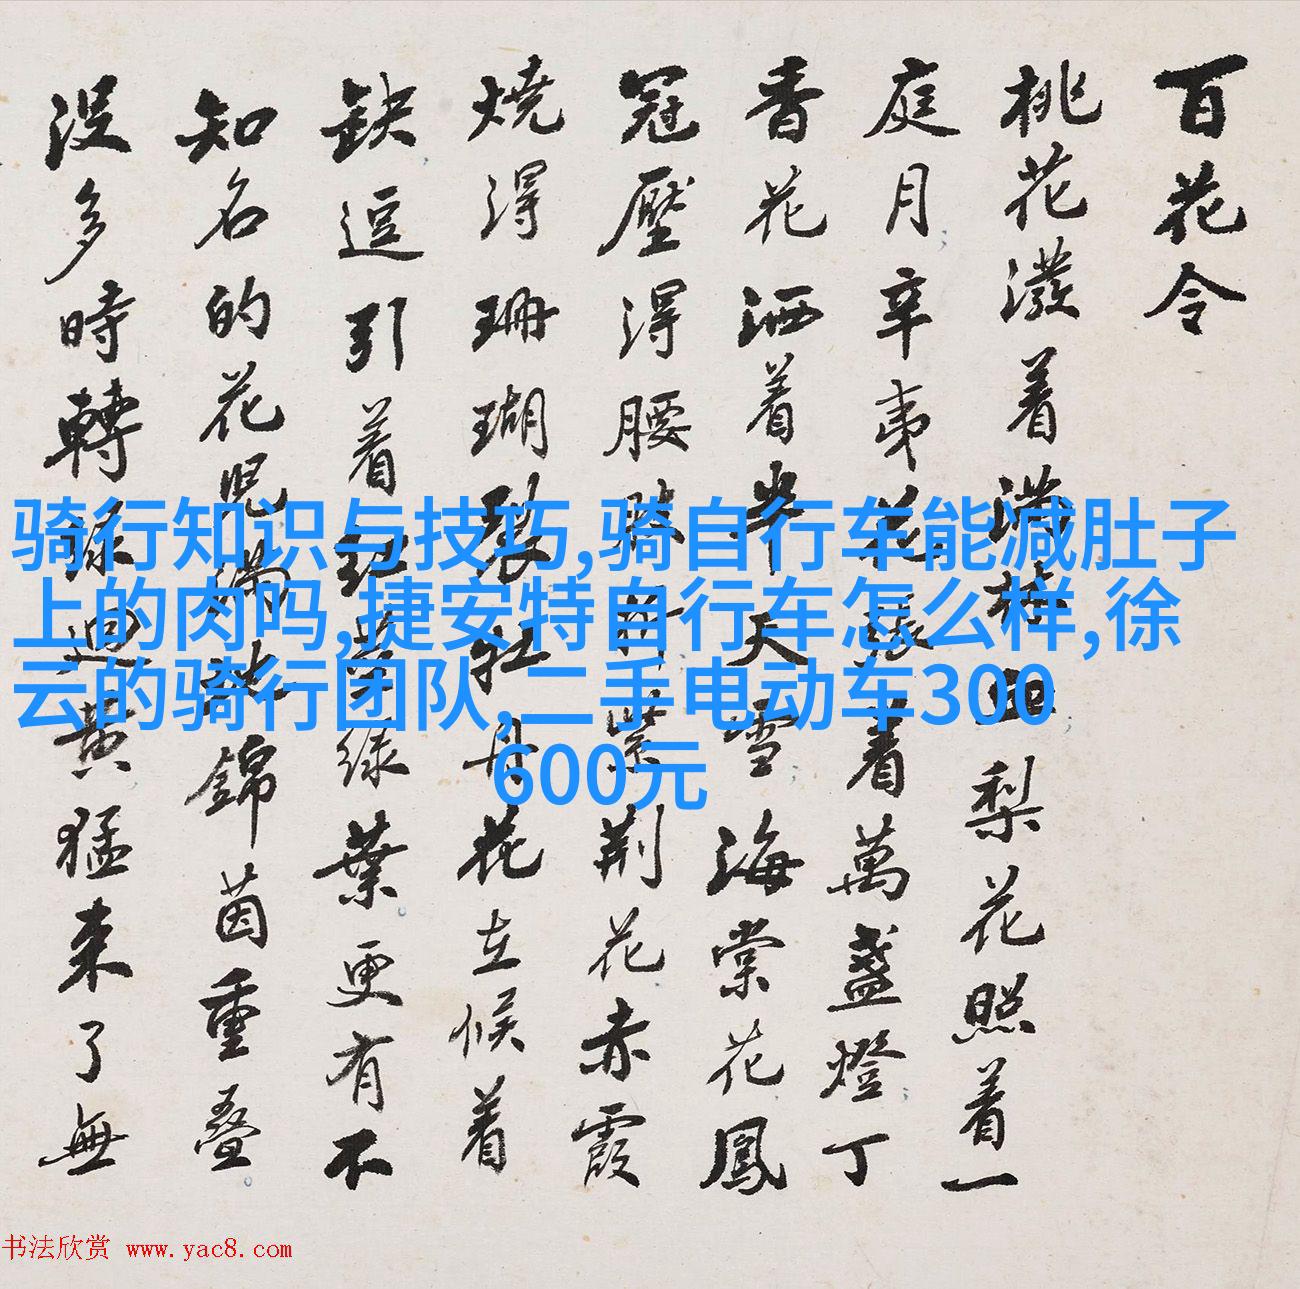 百花令
桃花潑着滿血梨花照着一
庭月辛夷花着萬盞燈丁
香花洒着半天雪海棠花鳳
冠壓得腰紫荊花赤霞
燒得珊瑚裂牡丹花立候着
缺逗引着紅綠葉更有不
知名的花兒滿地錦茵重疊
没多時轉綠迴黄猛来了無
骑行知识与技巧,骑自行车能减肚子
上的肉吗,捷安特自行车怎么样,徐
云的骑行团队,二手电动车300
600元
书法欣赏 www.yac8.com